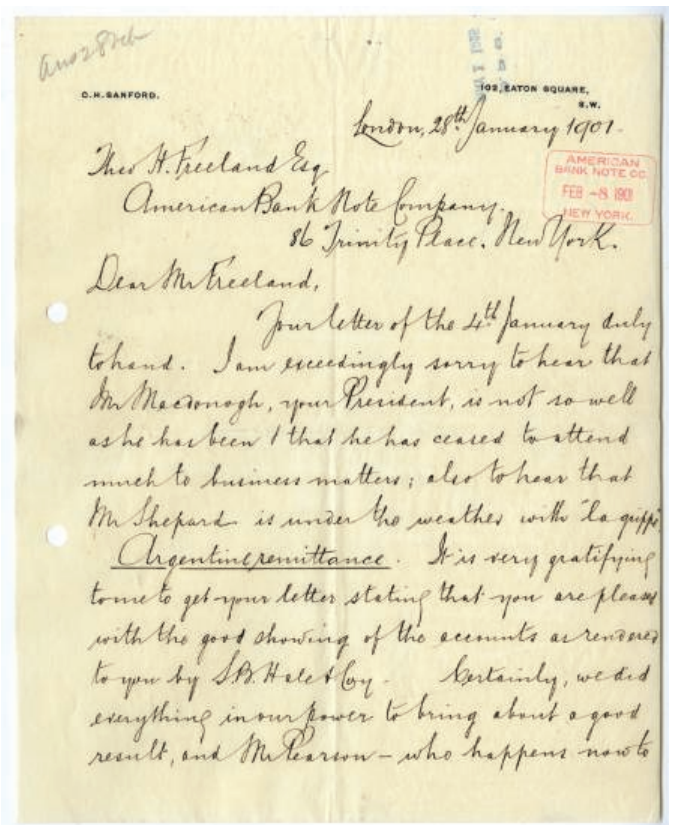 Ans 28 Feb
C.H. SANFORD.
102, EATON SQUARE,
S.W.
London, 28th January 1901.
Theo H. Freeland Esq
American Bank Note Company.
86 Trinity Place. New York.
AMERICAN
BANK NOTE CO.
FEB -8 1901
NEW YORK.
Dear Mr Freeland,
Your letter of the 4th January duly
to hand. I am exceedingly sorry to hear that
Mr Macdonogh, your President, is not so well
as he has been & that he has ceased to attend
much to business matters; also to hear that
Mr Shepard is under the weather with "la grippe".
Argentine remittance. It is very gratifying
to me to get your letter stating that you are pleased
with the good showing of the accounts as rendered
to you by S.B. Hale & Coy. Certainly, we did
everything in our power to bring about a good
result, and Mr Pearson - who happens now to